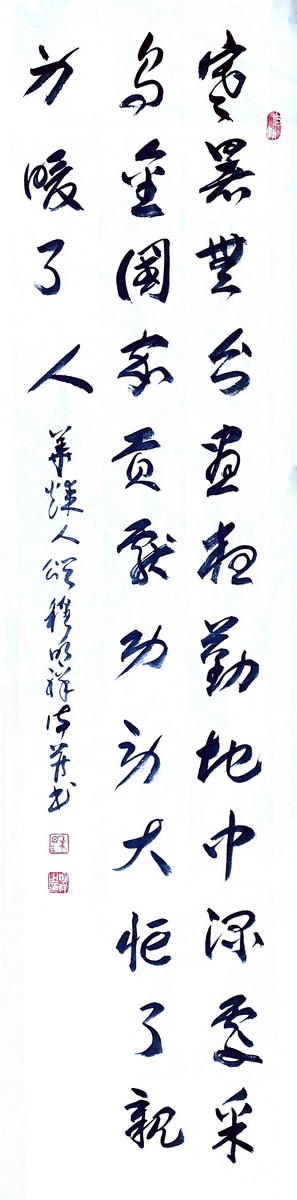 寒暑無分晝夜勤地中深處采
烏金國家貢獻功勛大忙了親
方暖了人
華煤人頌 程明祥詩并書